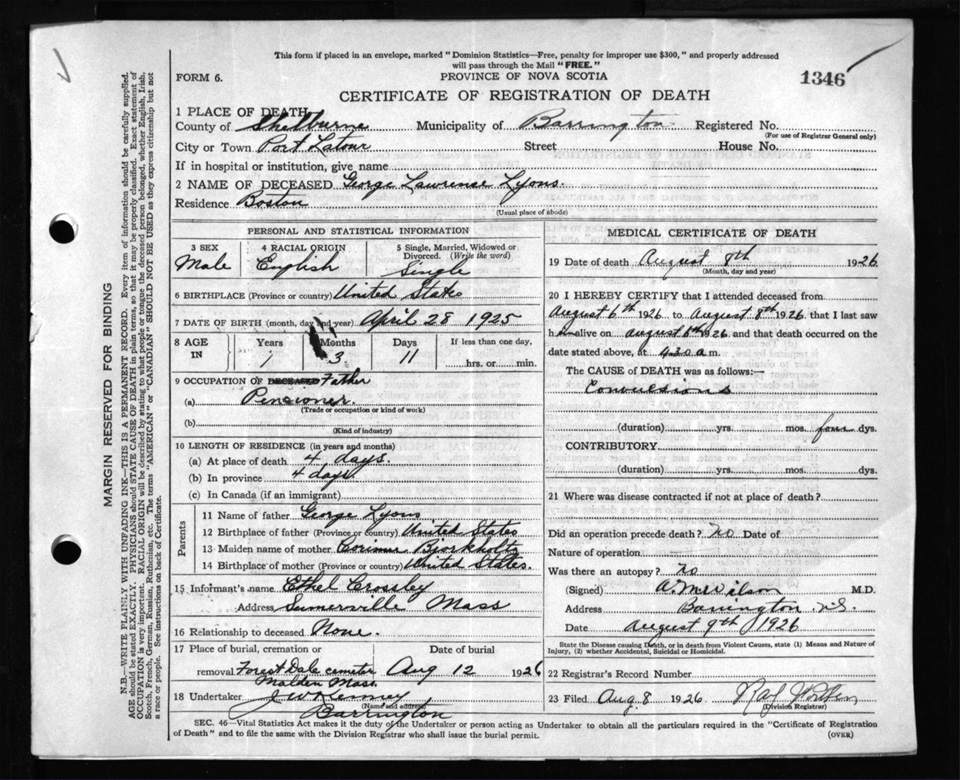 This form if placed in an envelope, marked "Dominion Statistics—Free, penalty for improper use $300," and properly addressed
will pass through the Mail "FREE."
FORM 6.
PROVINCE OF NOVA SCOTIA
1346
CERTIFICATE OF REGISTRATION OF DEATH
1 PLACE OF DEATH
County of Shelburne Municipality of Barrington Registered No.
(For use of Registrar General only)
City or Town Port Latour Street House No.
If in hospital or institution, give name
2 NAME OF DECEASED George Lawrense Lyons.
Residence Boston
(Usual place of abode)
PERSONAL AND STATISTICAL INFORMATION
3 SEX 4 RACIAL ORIGIN 5 Single, Married, Widowed or
Divorced. (Write the word)
Male English Single
6 BIRTHPLACE (Province or country) United States
7 DATE OF BIRTH (month, day and year) April 28 1925
8 AGE IN Years Months Days If less than one day,
1 3 11 hrs. or min.
9 OCCUPATION OF DECEASED Father
(a) Pensioner.
(Trade or occupation or kind of work)
(b)
(Kind of industry)
10 LENGTH OF RESIDENCE (in years and months)
(a) At place of death 4 days.
(b) In province 4 days.
(c) In Canada (if an immigrant)
Parents
11 Name of father George Lyons
12 Birthplace of father (Province or country) United States
13 Maiden name of mother Corinne Bjorkholtz
14 Birthplace of mother (Province or country) United States.
15 Informant's name Ethel Crossby
Address Sumerville Mass
16 Relationship to deceased None.
17 Place of burial, cremation or Date of burial
removal Forest Dale cemeter Aug 12 1926
Malden Mass.
18 Undertaker J W Kenney
(Name and address)
Barrington
MEDICAL CERTIFICATE OF DEATH
19 Date of death August 8th 1926
(Month, day and year)
20 I HEREBY CERTIFY that I attended deceased from
August 6th 1926 to August 8th 1926 that I last saw
h alive on August 8th 1926 and that death occurred on the
date stated above, at 4.20 a m.
The CAUSE of DEATH was as follows:—
Convulsions
(duration) yrs. mos. four dys.
CONTRIBUTORY.
(duration) yrs. mos. dys.
21 Where was disease contracted if not at place of death?
Did an operation precede death? no Date of
Nature of operation
Was there an autopsy? no
(Signed) A. M Wilson M.D.
Address Barrington N.S.
Date August 9th 1926
State the Disease causing Death, or in death from Violent Causes, state (1) Means and Nature of
Injury, (2) whether Accidental, Suicidal or Homicidal.
22 Registrar's Record Number
23 Filed Aug. 8 1926
(Division Registrar)
SEC. 46—Vital Statistics Act makes it the duty of the Undertaker or person acting as Undertaker to obtain all the particulars required in the "Certificate of Registration
of Death" and to file the same with the Division Registrar who shall issue the burial permit.
(OVER)
MARGIN RESERVED FOR BINDING
N.B.—WRITE PLAINLY WITH UNFADING INK—THIS IS A PERMANENT RECORD. Every item of information should be carefully supplied.
AGE should be stated EXACTLY. PHYSICIANS should STATE CAUSE OF DEATH in plain terms, so that it may be properly classified. Exact statement of
OCCUPATION is very important. RACIAL ORIGIN will be described by stating to what people or tongue the deceased person belonged, whether English, Irish,
Scotch, French, German, Russian, Ruthenian, etc. The terms "AMERICAN" or "CANADIAN" SHOULD NOT BE USED as they express citizenship but not
a race or people. See instructions on back of Certificate.